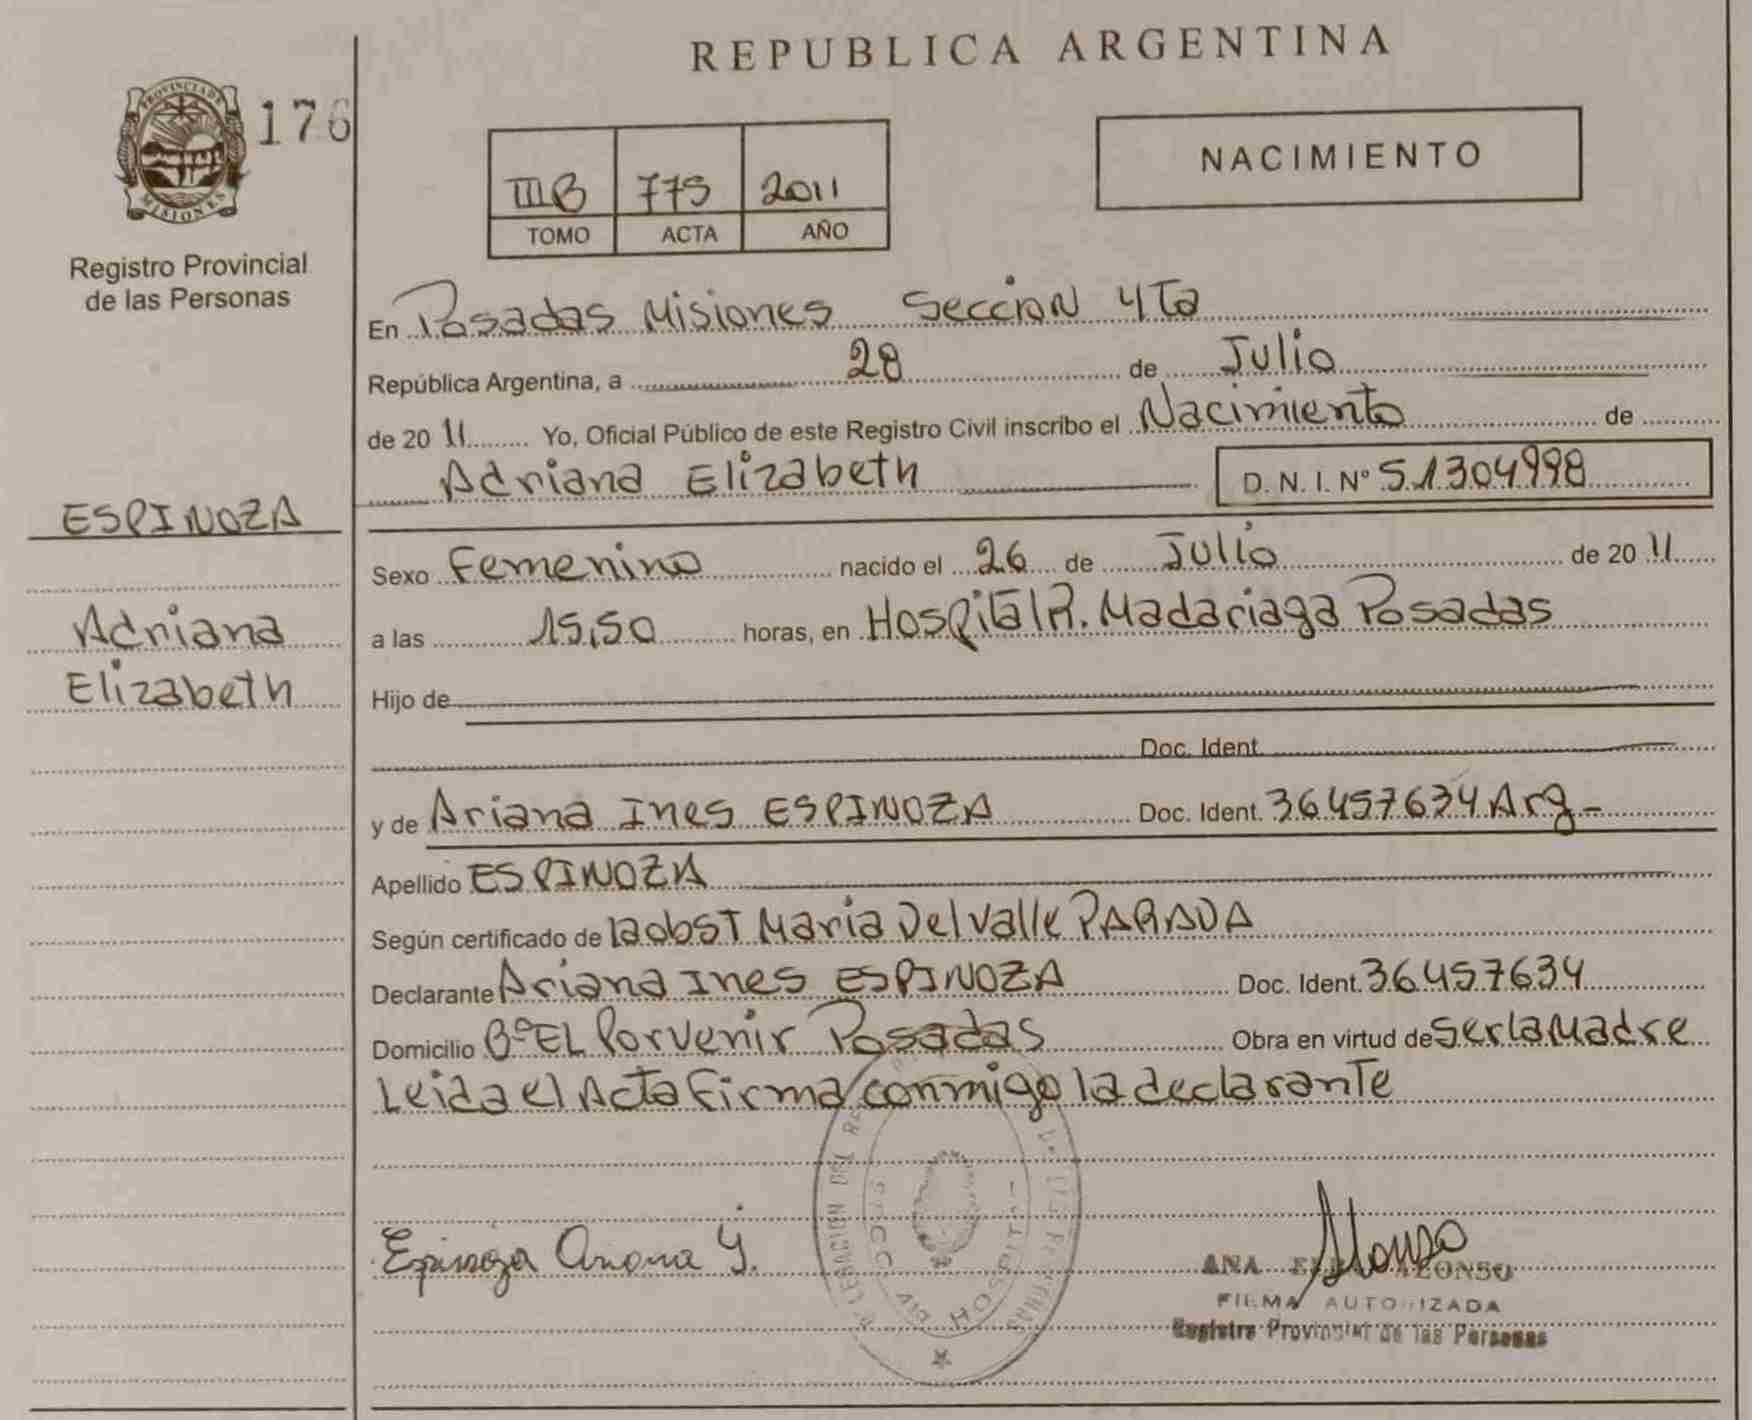 REPUBLICA ARGENTINA
PROVINCIA DE
MISIONES
176
Registro Provincial
de las Personas
NACIMIENTO
III B 775 2011
TOMO ACTA AÑO
En Posadas Misiones Seccion 4ta
República Argentina, a 28 de Julio
de 20 11 Yo, Oficial Público de este Registro Civil inscribo el Nacimiento de
Adriana Elizabeth D.N.I. Nº 51304998
ESPINOZA
Adriana
Elizabeth
Sexo Femenino nacido el 26 de Julio de 20 11
a las 15,50 horas, en Hospital R. Madariaga Posadas
Hijo de
Doc. Ident.
y de Ariana Ines ESPINOZA Doc. Ident. 36457634 Arg-
Apellido ESPINOZA
Según certificado de la obst Maria Del Valle PARADA
Declarante Ariana Ines ESPINOZA Doc. Ident. 36457634
Domicilio Bº EL Porvenir Posadas Obra en virtud de ser la Madre
Leida el Acta firma conmigo la declarante
Espinoza Ariana Y.
Alonso
ANA ALONSO
FIRMA AUTORIZADA
Registro Provincial de las Personas
HOSPITAL